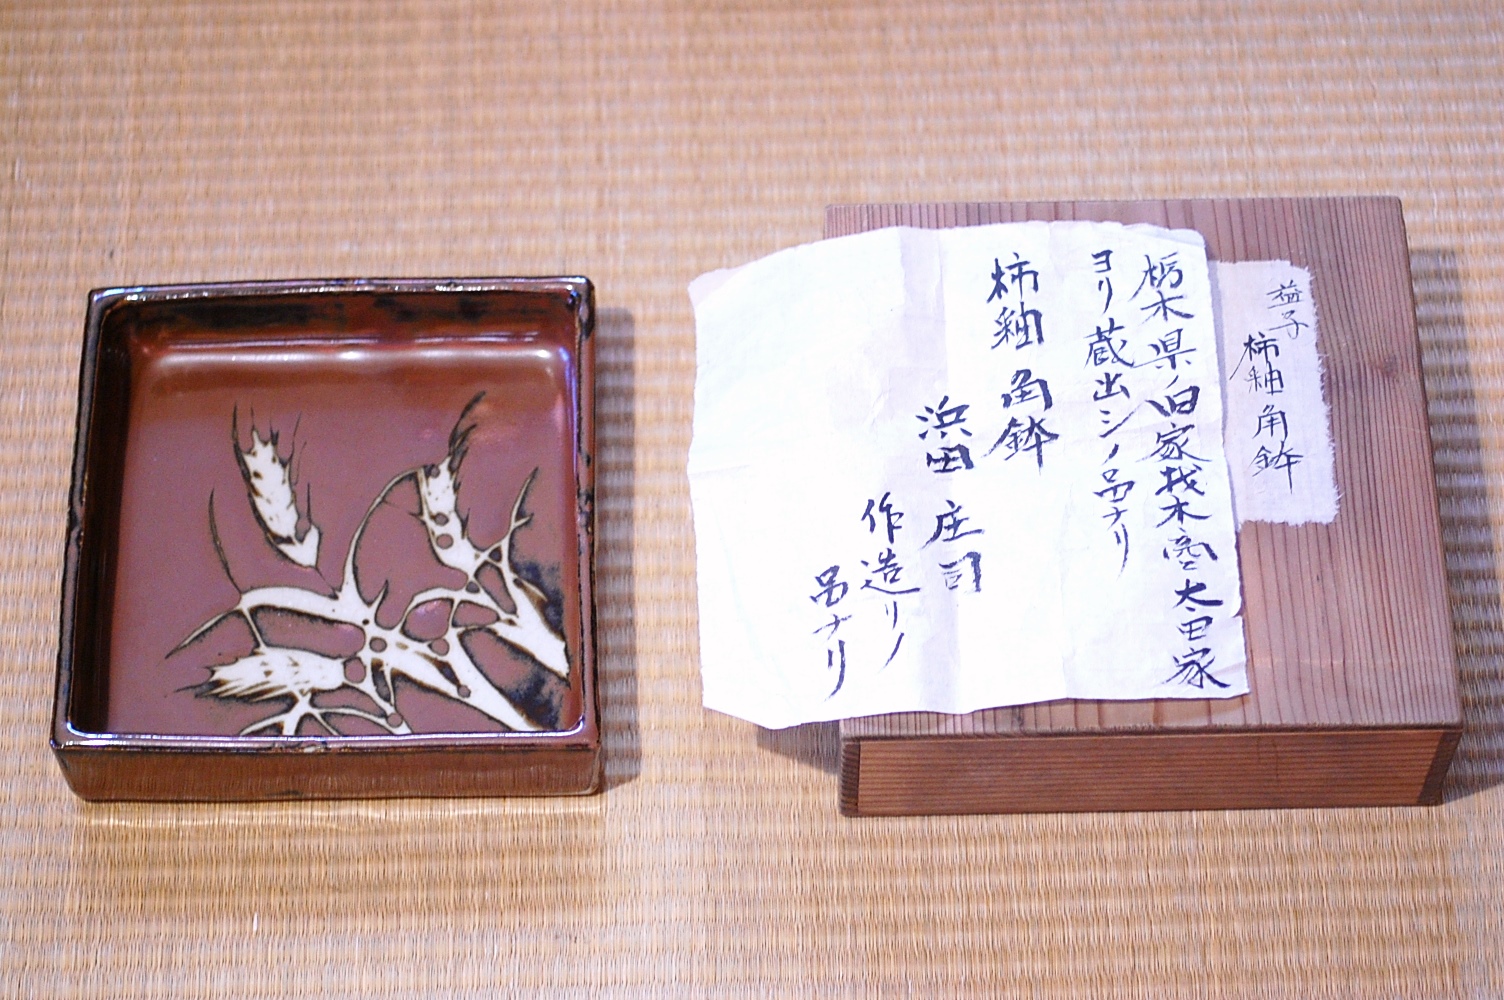 益子
柿釉角鉢
栃木県ノ旧家栃木 太田家
ヨリ蔵出シノ品ナリ
柿釉 角鉢
浜田 庄司
作造リノ
品ナリ